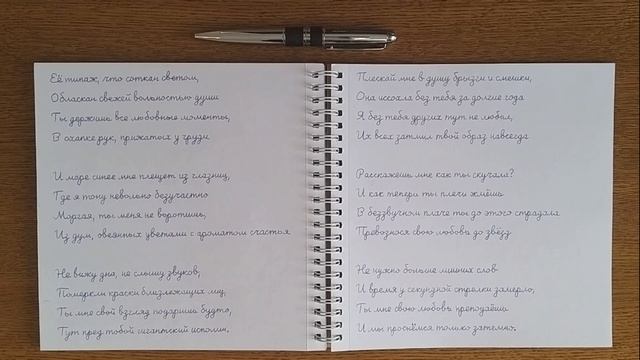 Её типаж, что соткан светом,
Обласкан свежей вольностью души
Ты держишь все любовные моменты,
В охапке рук, прижатых у груди.
И море синее мне плещет из глазниц,
Где я тону невольно безучастно
Моргая, ты меня не воротишь,
Из дум, овеянных цветами с ароматом счастья
Не вижу дна, не слышу звуков,
Померкли краски близлежащих лиц,
Ты мне свой взгляд подаришь будто,
Тут пред тобой гигантский исполин.
Плескай мне в душу брызги и смешки,
Она иссохла без тебя за долгие года
Я без тебя других тут не любил,
Их всех затмил твой образ навсегда
Расскажешь мне как ты скучала?
И как теперь ты плечи жмёшь
В беззвучном плаче ты до этого страдала
Превознося свою любовь до звёзд
Не нужно больше лишних слов
И время у секундной стрелки замерло,
Ты мне свою любовь преподаёшь
И мы проснёмся только затемно.